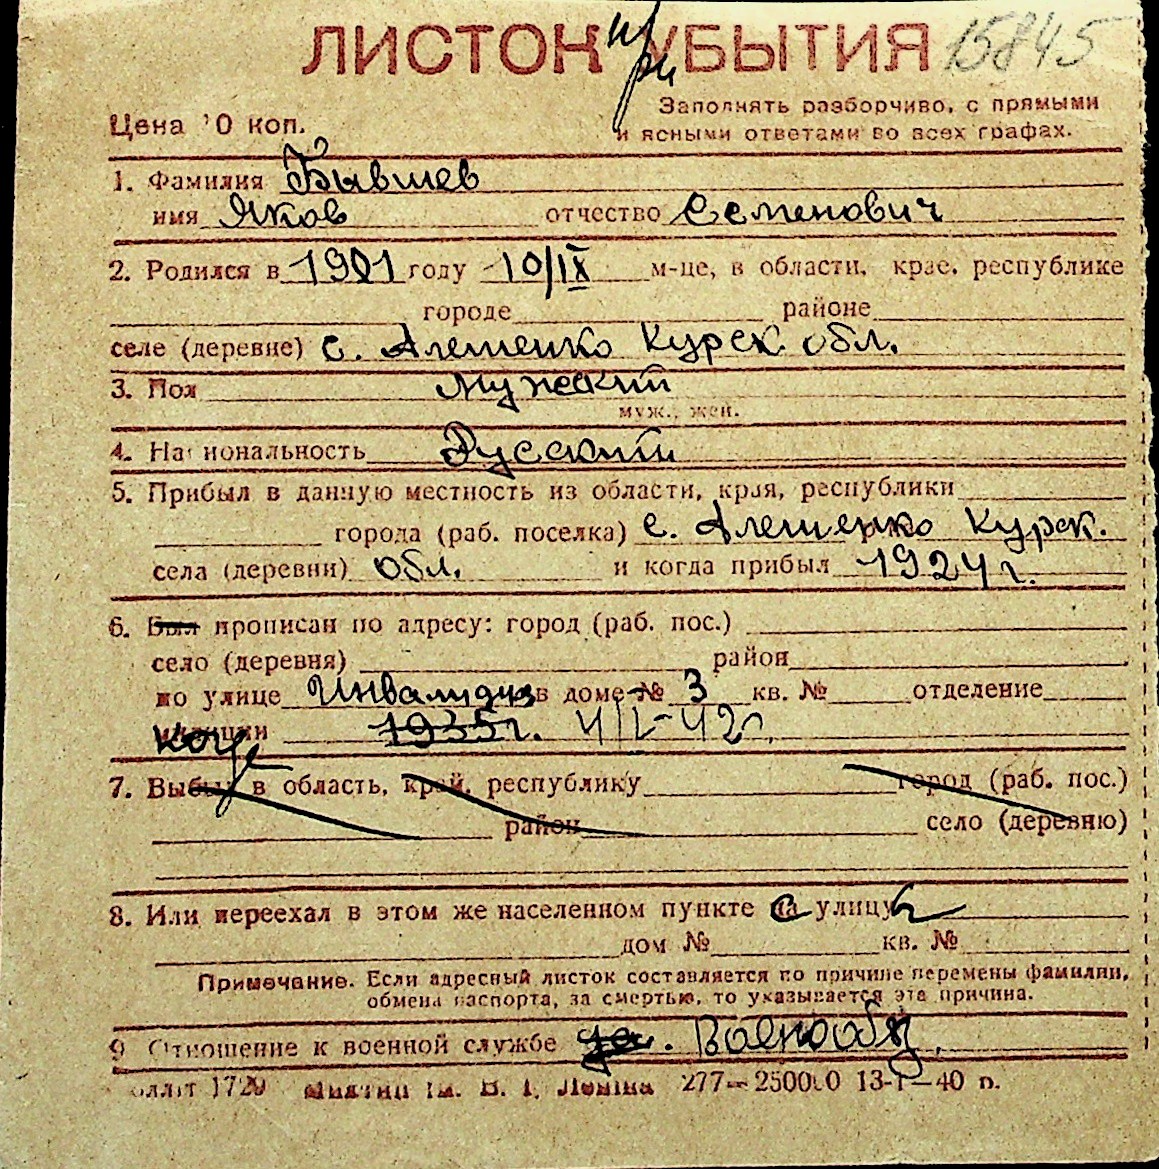 ЛИСТОК при УБЫТИЯ 15845
Заполнять разборчиво, с прямыми
Цена 10 коп. и ясными ответами во всех графах.
1. Фамилия Бывшев
имя Яков отчество Семенович
2. Родился в 1901 году 10/IX м-це, в области, крае, республике
городе районе
селе (деревне) с. Алешенко Курск обл.
3. Пол Мужский
муж., жен.
4. Национальность Русский
5. Прибыл в данную местность из области, края, республики
города (раб. поселка) с. Алешенко Курск.
села (деревни) обл. и когда прибыл 1924 г.
6. Был прописан по адресу: город (раб. пос.)
село (деревня) район
по улице в доме № 3 кв. № отделение
милиции 1935г. 4/I-42г.
7. Выбыл в область, край, республику город (раб. пос.)
район село (деревню)
8. Или переехал в этом же населенном пункте на улицу
дом № кв. №
Примечание. Если адресный листок составляется по причине перемены фамилии,
обмена паспорта, за смертью, то указывается эта причина.
9 Отношение к военной службе Военнообяз.
1720 им. В. И. Ленина 277—250000 13-I—40 г.